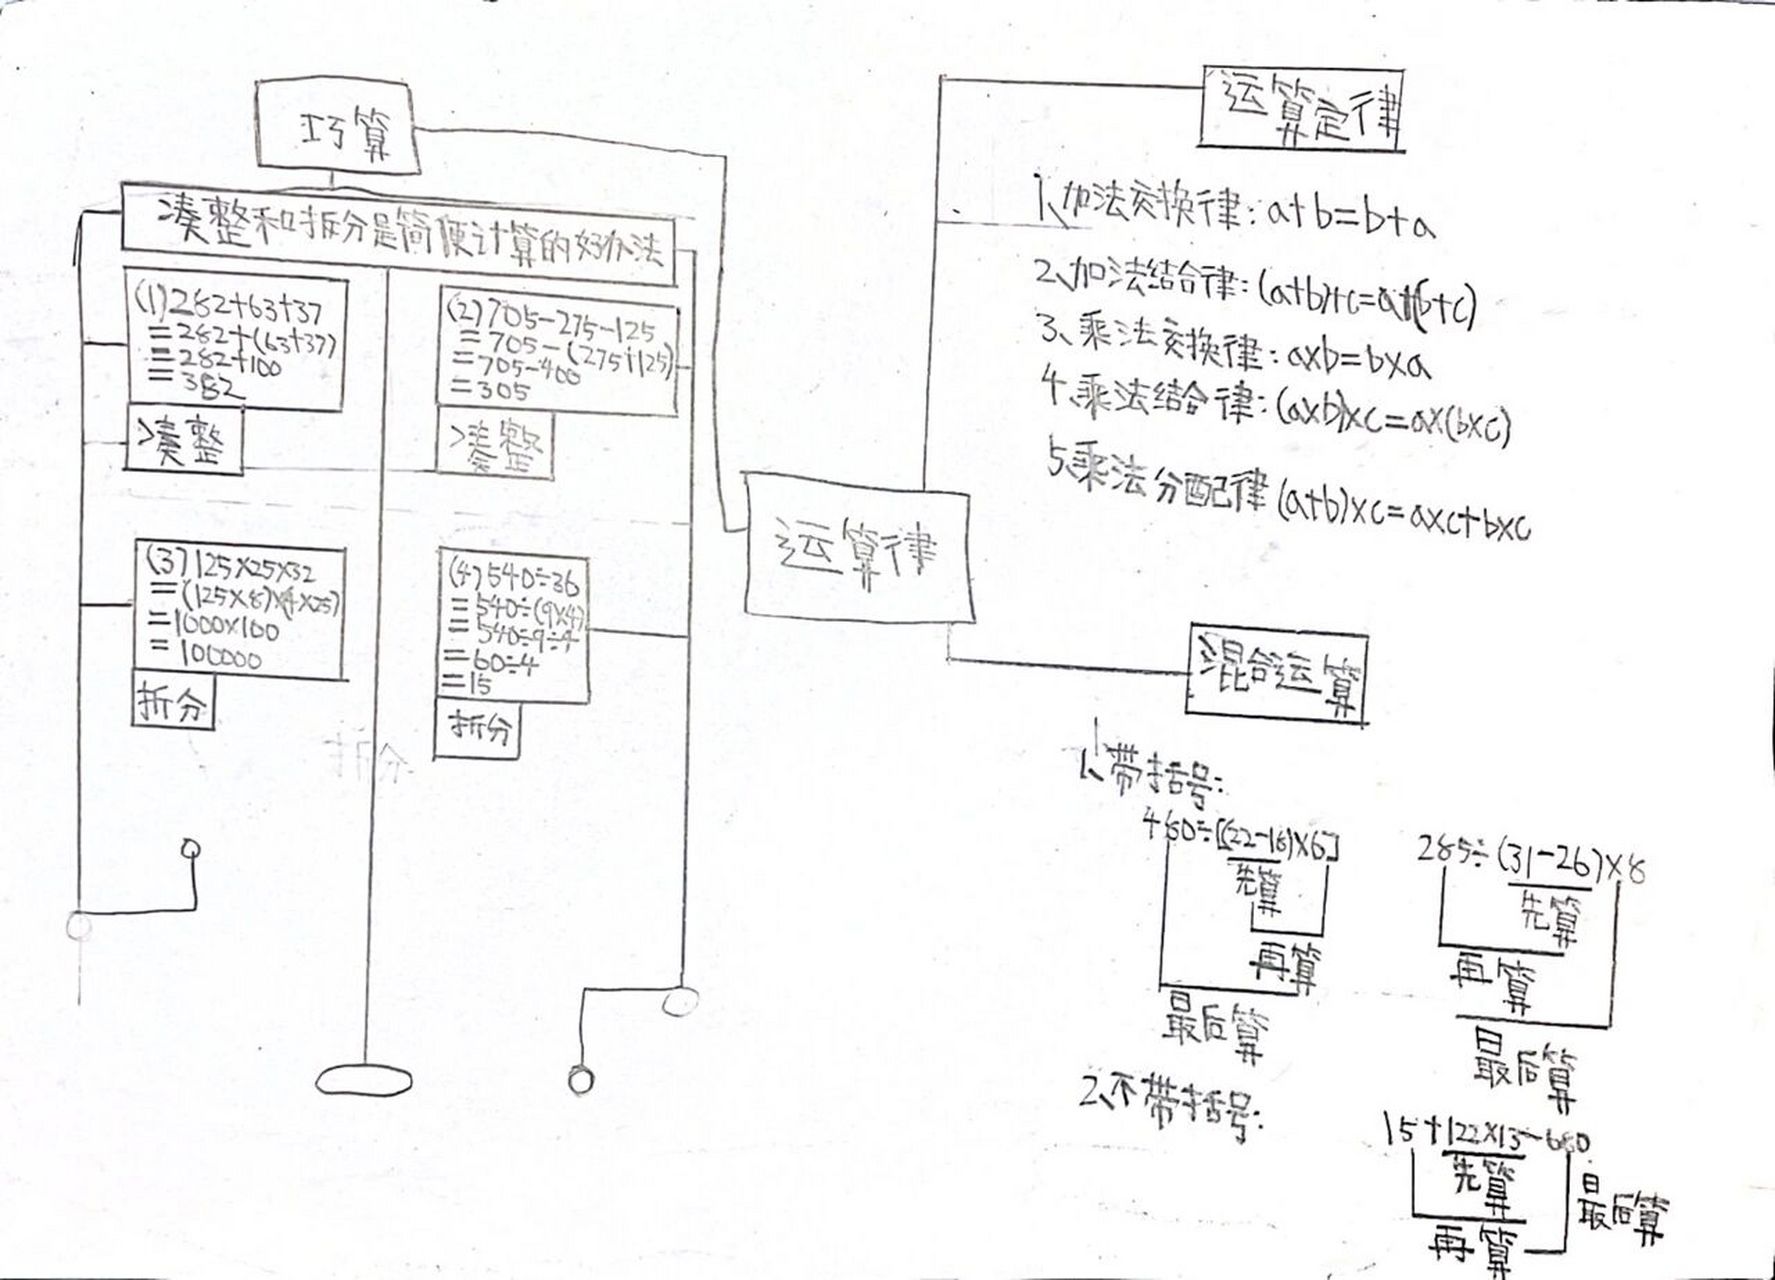 巧算
凑整和拆分是简便计算的好办法
(1)282+63+37
=282+(63+37)
=282+100
=382
凑整
(2)705-275-125
=705-(275+125)
=705-400
=305
凑整
(3)125×25×32
=(125×8)×(4×25)
=1000×100
=100000
拆分
(4)540÷36
=540÷(9×4)
=540÷9÷4
=60÷4
=15
拆分
运算律
运算定律
1、加法交换律:a+b=b+a
2、加法结合律:(a+b)+c=a+(b+c)
3、乘法交换律:a×b=b×a
4、乘法结合律:(a×b)×c=a×(b×c)
5、乘法分配律(a+b)×c=a×c+b×c
混合运算
1、带括号:
480÷[(22-18)×6]
先算
再算
最后算
285÷(31-26)×8
先算
再算
最后算
2、不带括号:
15+122×13-680
先算
再算
最后算